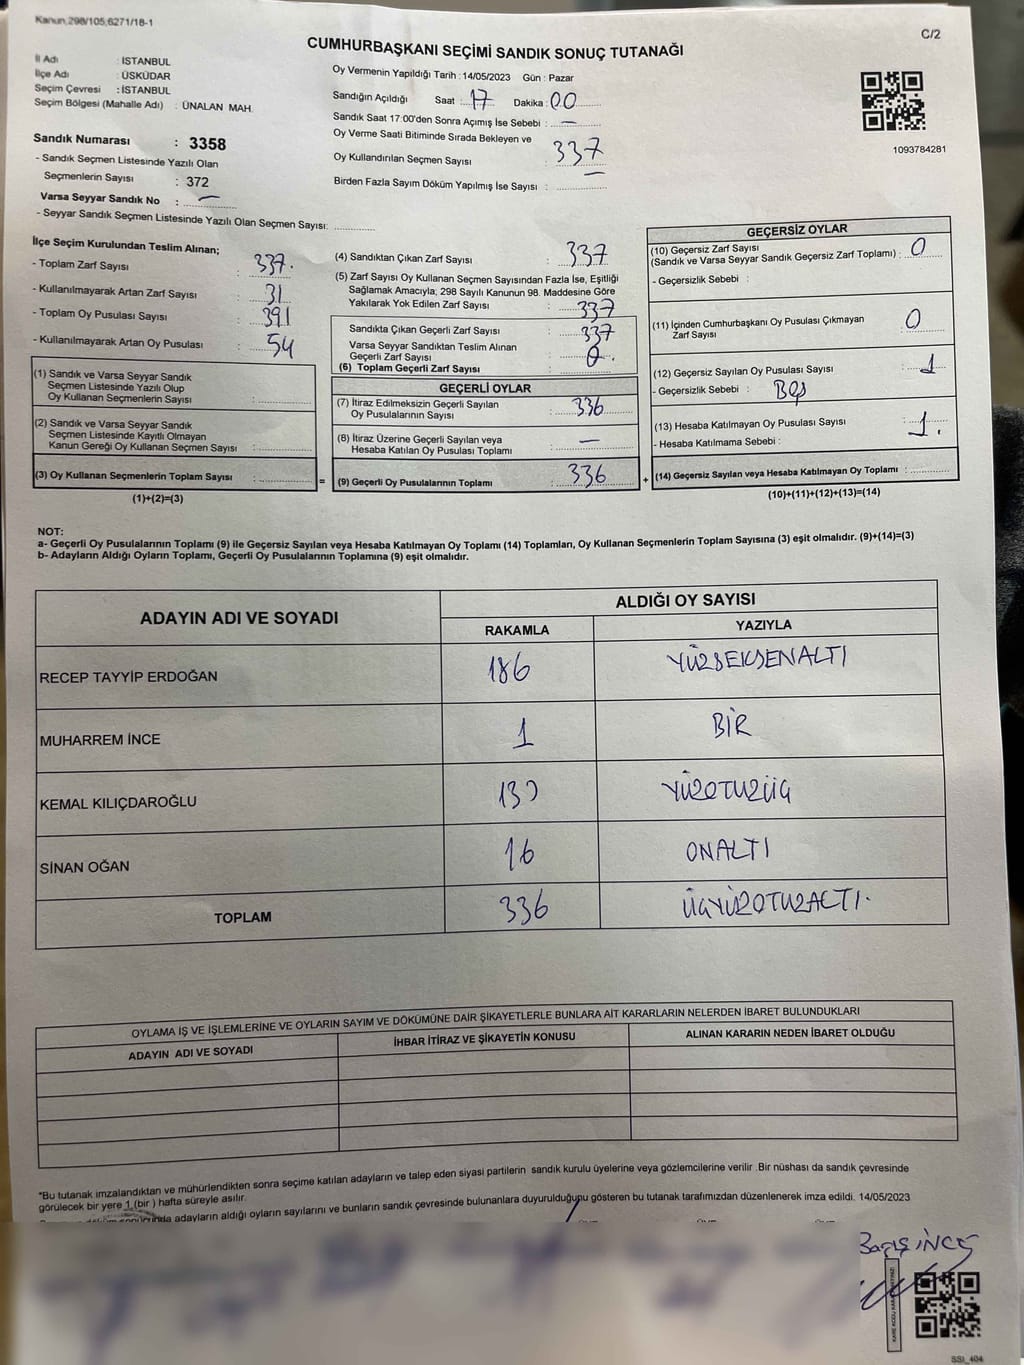 Kanun,298/105,6271/18-1
C/2
CUMHURBAŞKANI SEÇİMİ SANDIK SONUÇ TUTANAĞI
İl Adı : İSTANBUL
İlçe Adı : ÜSKÜDAR
Seçim Çevresi : İSTANBUL
Seçim Bölgesi (Mahalle Adı) : ÜNALAN MAH.
Sandık Numarası : 3358
- Sandık Seçmen Listesinde Yazılı Olan
Seçmenlerin Sayısı : 372
Varsa Seyyar Sandık No : —
- Seyyar Sandık Seçmen Listesinde Yazılı Olan Seçmen Sayısı: ............
Oy Vermenin Yapıldığı Tarih : 14/05/2023 Gün : Pazar
Sandığın Açıldığı Saat : 17 Dakika : 00
Sandık Saat 17:00'den Sonra Açımış İse Sebebi : —
Oy Verme Saati Bitiminde Sırada Bekleyen ve
Oy Kullandırılan Seçmen Sayısı : 337
Birden Fazla Sayım Döküm Yapılmış İse Sayısı : ............
1093784281
İlçe Seçim Kurulundan Teslim Alınan;
- Toplam Zarf Sayısı : 337.
- Kullanılmayarak Artan Zarf Sayısı : 31
- Toplam Oy Pusulası Sayısı : 391
- Kullanılmayarak Artan Oy Pusulası : 54
(1) Sandık ve Varsa Seyyar Sandık
Seçmen Listesinde Yazılı Olup
Oy Kullanan Seçmenlerin Sayısı : ............
(2) Sandık ve Varsa Seyyar Sandık
Seçmen Listesinde Kayıtlı Olmayan
Kanun Gereği Oy Kullanan Seçmen Sayısı : ............
(3) Oy Kullanan Seçmenlerin Toplam Sayısı : ............ =
(1)+(2)=(3)
(4) Sandıktan Çıkan Zarf Sayısı : 337
(5) Zarf Sayısı Oy Kullanan Seçmen Sayısından Fazla İse, Eşitliği
Sağlamak Amacıyla; 298 Sayılı Kanunun 98. Maddesine Göre
Yakılarak Yok Edilen Zarf Sayısı : 337
Sandıkta Çıkan Geçerli Zarf Sayısı : 337
Varsa Seyyar Sandıktan Teslim Alınan
Geçerli Zarf Sayısı : 0.
(6) Toplam Geçerli Zarf Sayısı : ............
GEÇERLİ OYLAR
(7) İtiraz Edilmeksizin Geçerli Sayılan
Oy Pusulalarının Sayısı : 336
(8) İtiraz Üzerine Geçerli Sayılan veya
Hesaba Katılan Oy Pusulası Toplamı : —
(9) Geçerli Oy Pusulalarının Toplamı : 336 +
GEÇERSİZ OYLAR
(10) Geçersiz Zarf Sayısı
(Sandık ve Varsa Seyyar Sandık Geçersiz Zarf Toplamı) : 0
- Geçersizlik Sebebi :
(11) İçinden Cumhurbaşkanı Oy Pusulası Çıkmayan
Zarf Sayısı : 0
(12) Geçersiz Sayılan Oy Pusulası Sayısı : 1
- Geçersizlik Sebebi : Boş
(13) Hesaba Katılmayan Oy Pusulası Sayısı : 1.
- Hesaba Katılmama Sebebi :
(14) Geçersiz Sayılan veya Hesaba Katılmayan Oy Toplamı : ............
(10)+(11)+(12)+(13)=(14)
NOT:
a- Geçerli Oy Pusulalarının Toplamı (9) ile Geçersiz Sayılan veya Hesaba Katılmayan Oy Toplamı (14) Toplamları, Oy Kullanan Seçmenlerin Toplam Sayısına (3) eşit olmalıdır. (9)+(14)=(3)
b- Adayların Aldığı Oyların Toplamı, Geçerli Oy Pusulalarının Toplamına (9) eşit olmalıdır.
ADAYIN ADI VE SOYADI ALDIĞI OY SAYISI
RAKAMLA YAZIYLA
RECEP TAYYİP ERDOĞAN 186 YÜZSEKSENALTI
MUHARREM İNCE 1 BİR
KEMAL KILIÇDAROĞLU 133 YÜZOTUZÜÇ
SİNAN OĞAN 16 ONALTI
TOPLAM 336 ÜÇYÜZOTUZALTI.
OYLAMA İŞ VE İŞLEMLERİNE VE OYLARIN SAYIM VE DÖKÜMÜNE DAİR ŞİKAYETLERLE BUNLARA AİT KARARLARIN NELERDEN İBARET BULUNDUKLARI
ADAYIN ADI VE SOYADI İHBAR İTİRAZ VE ŞİKAYETİN KONUSU ALINAN KARARIN NEDEN İBARET OLDUĞU
"Bu tutanak imzalandıktan ve mühürlendikten sonra seçime katılan adayların ve talep eden siyasi partilerin sandık kurulu üyelerine veya gözlemcilerine verilir .Bir nüshası da sandık çevresinde
görülecek bir yere 1 (bir ) hafta süreyle asılır.
adayların aldığı oyların sayılarını ve bunların sandık çevresinde bulunanlara duyurulduğunu gösteren bu tutanak tarafımızdan düzenlenerek imza edildi. 14/05/2023
Barış İNCE
SSI_404